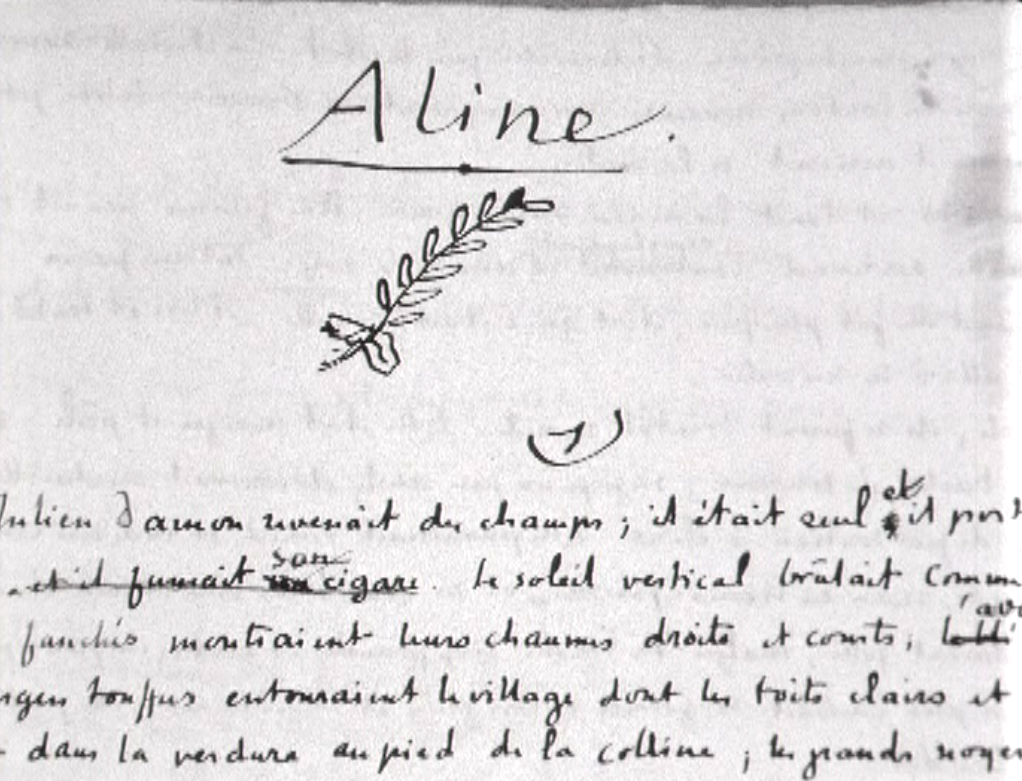 Aline.
1
Julien Damon revenait des champs ; il était seul et il
et il fumait son cigare. Le soleil vertical brûlait comm
fauchés montraient leurs chaumes droits et courts,
touffus entouraient le village dont les toits clairs et
dans la verdure au pied de la colline ; les grands noyer